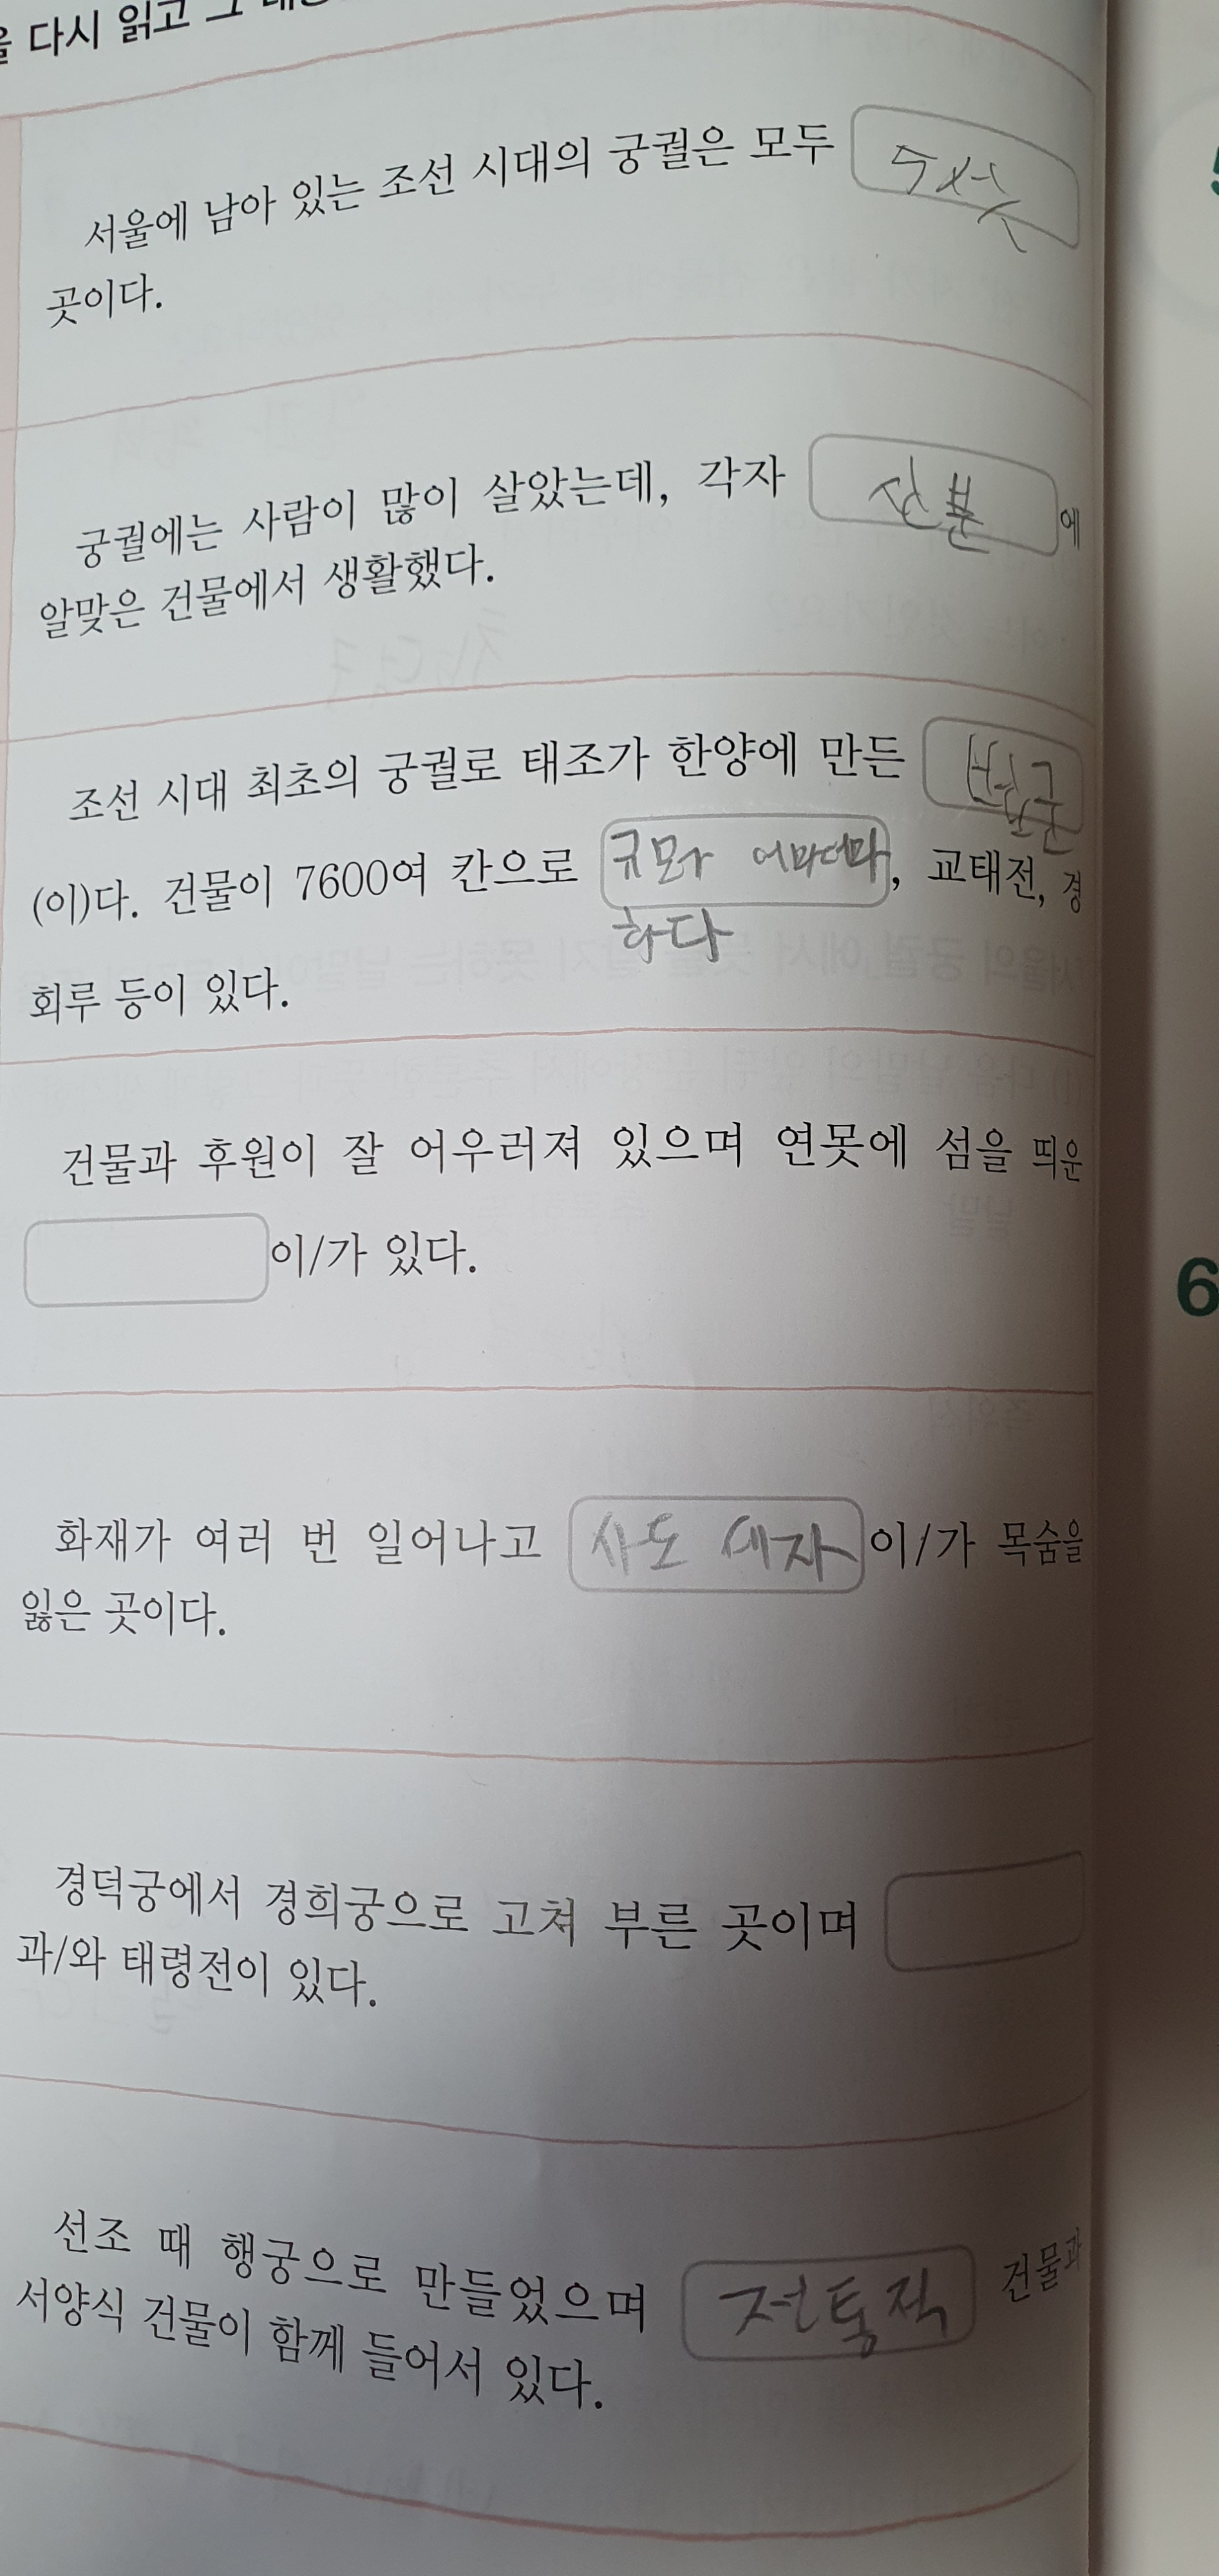 다시 읽고 그
서울에 남아 있는 조선 시대의 궁궐은 모두 다섯
곳이다.
궁궐에는 사람이 많이 살았는데, 각자 신분에
알맞은 건물에서 생활했다.
조선 시대 최초의 궁궐로 태조가 한양에 만든 법궁
(이)다. 건물이 7600여 칸으로 규모가 어마어마, 교태전, 경
하다
회루 등이 있다.
건물과 후원이 잘 어우러져 있으며 연못에 섬을 띄운
이/가 있다.
6
화재가 여러 번 일어나고 사도 세자이/가 목숨을
잃은 곳이다.
경덕궁에서 경희궁으로 고쳐 부른 곳이며
과/와 태령전이 있다.
선조 때 행궁으로 만들었으며 전통적 건물과
서양식 건물이 함께 들어서 있다.